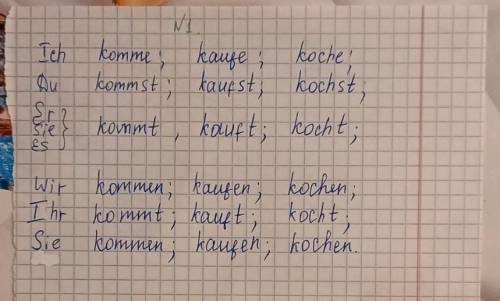 N1.
Ich komme; kaufe; koche;
Du kommst; kaufst; kochst;
Er
Sie } kommt, kauft; kocht;
es
Wir kommen; kaufen; kochen;
Ihr kommt; kauft; kocht;
Sie kommen; kaufen; kochen.